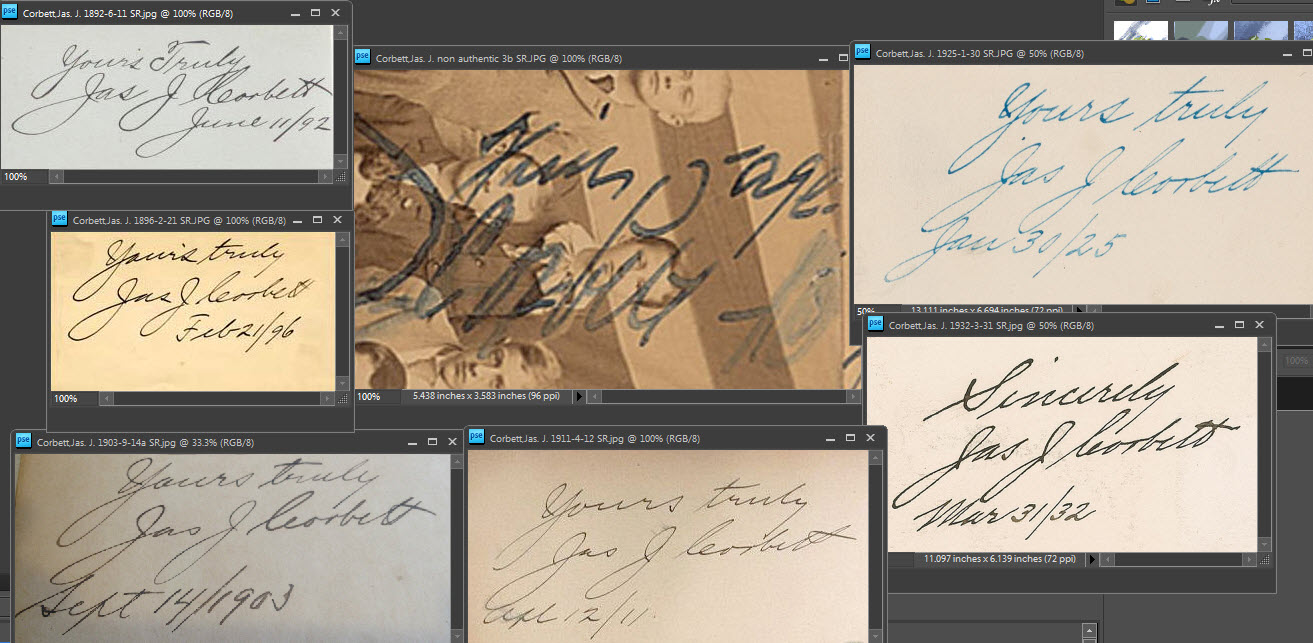 pse Corbett,Jas. J. 1892-6-11 SR.jpg @ 100% (RGB/8)
Yours Truly
Jas J Corbett
June 11/92
100%
pse Corbett,Jas. J. 1896-2-21 SR.JPG @ 100% (RGB/8)
Yours truly
Jas J Corbett
Feb 21/96
100%
pse Corbett,Jas. J. non authentic 3b SR.JPG @ 100% (RGB/8)
100% 5.438 inches x 3.583 inches (96 ppi)
pse Corbett,Jas. J. 1925-1-30 SR.JPG @ 50% (RGB/8)
Yours truly
Jas J Corbett
Jan 30/25
50% 13.111 inches x 6.694 inches (72 ppi)
pse Corbett,Jas. J. 1932-3-31 SR.jpg @ 50% (RGB/8)
Sincerely
Jas J Corbett
Mar 31/32
11.097 inches x 6.139 inches (72 ppi)
100%
pse Corbett,Jas. J. 1903-9-14a SR.jpg @ 33.3% (RGB/8)
Yours truly
Jas J Corbett
Sept 14/1903
pse Corbett,Jas. J. 1911-4-12 SR.jpg @ 100% (RGB/8)
Yours truly
Jas J Corbett
Apl 12/11